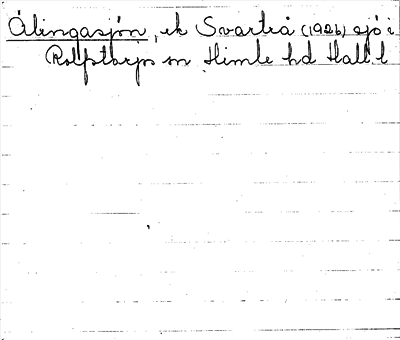 Ålingasjön, ek Svartrå (1926) sjö i
Rolfstorps sn Himle hd Hall. l